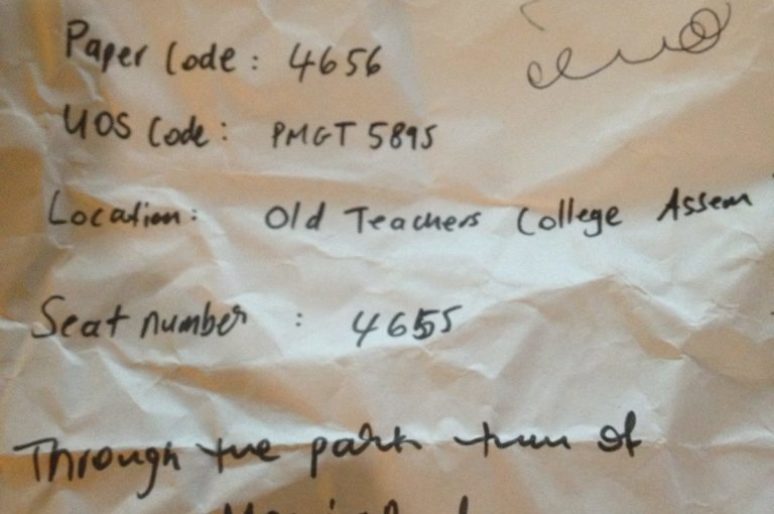 Paper Code: 4656
UOS Code: PMGT 5895
Location: Old Teachers College Assem
Seat number : 4655
Through the park turn of